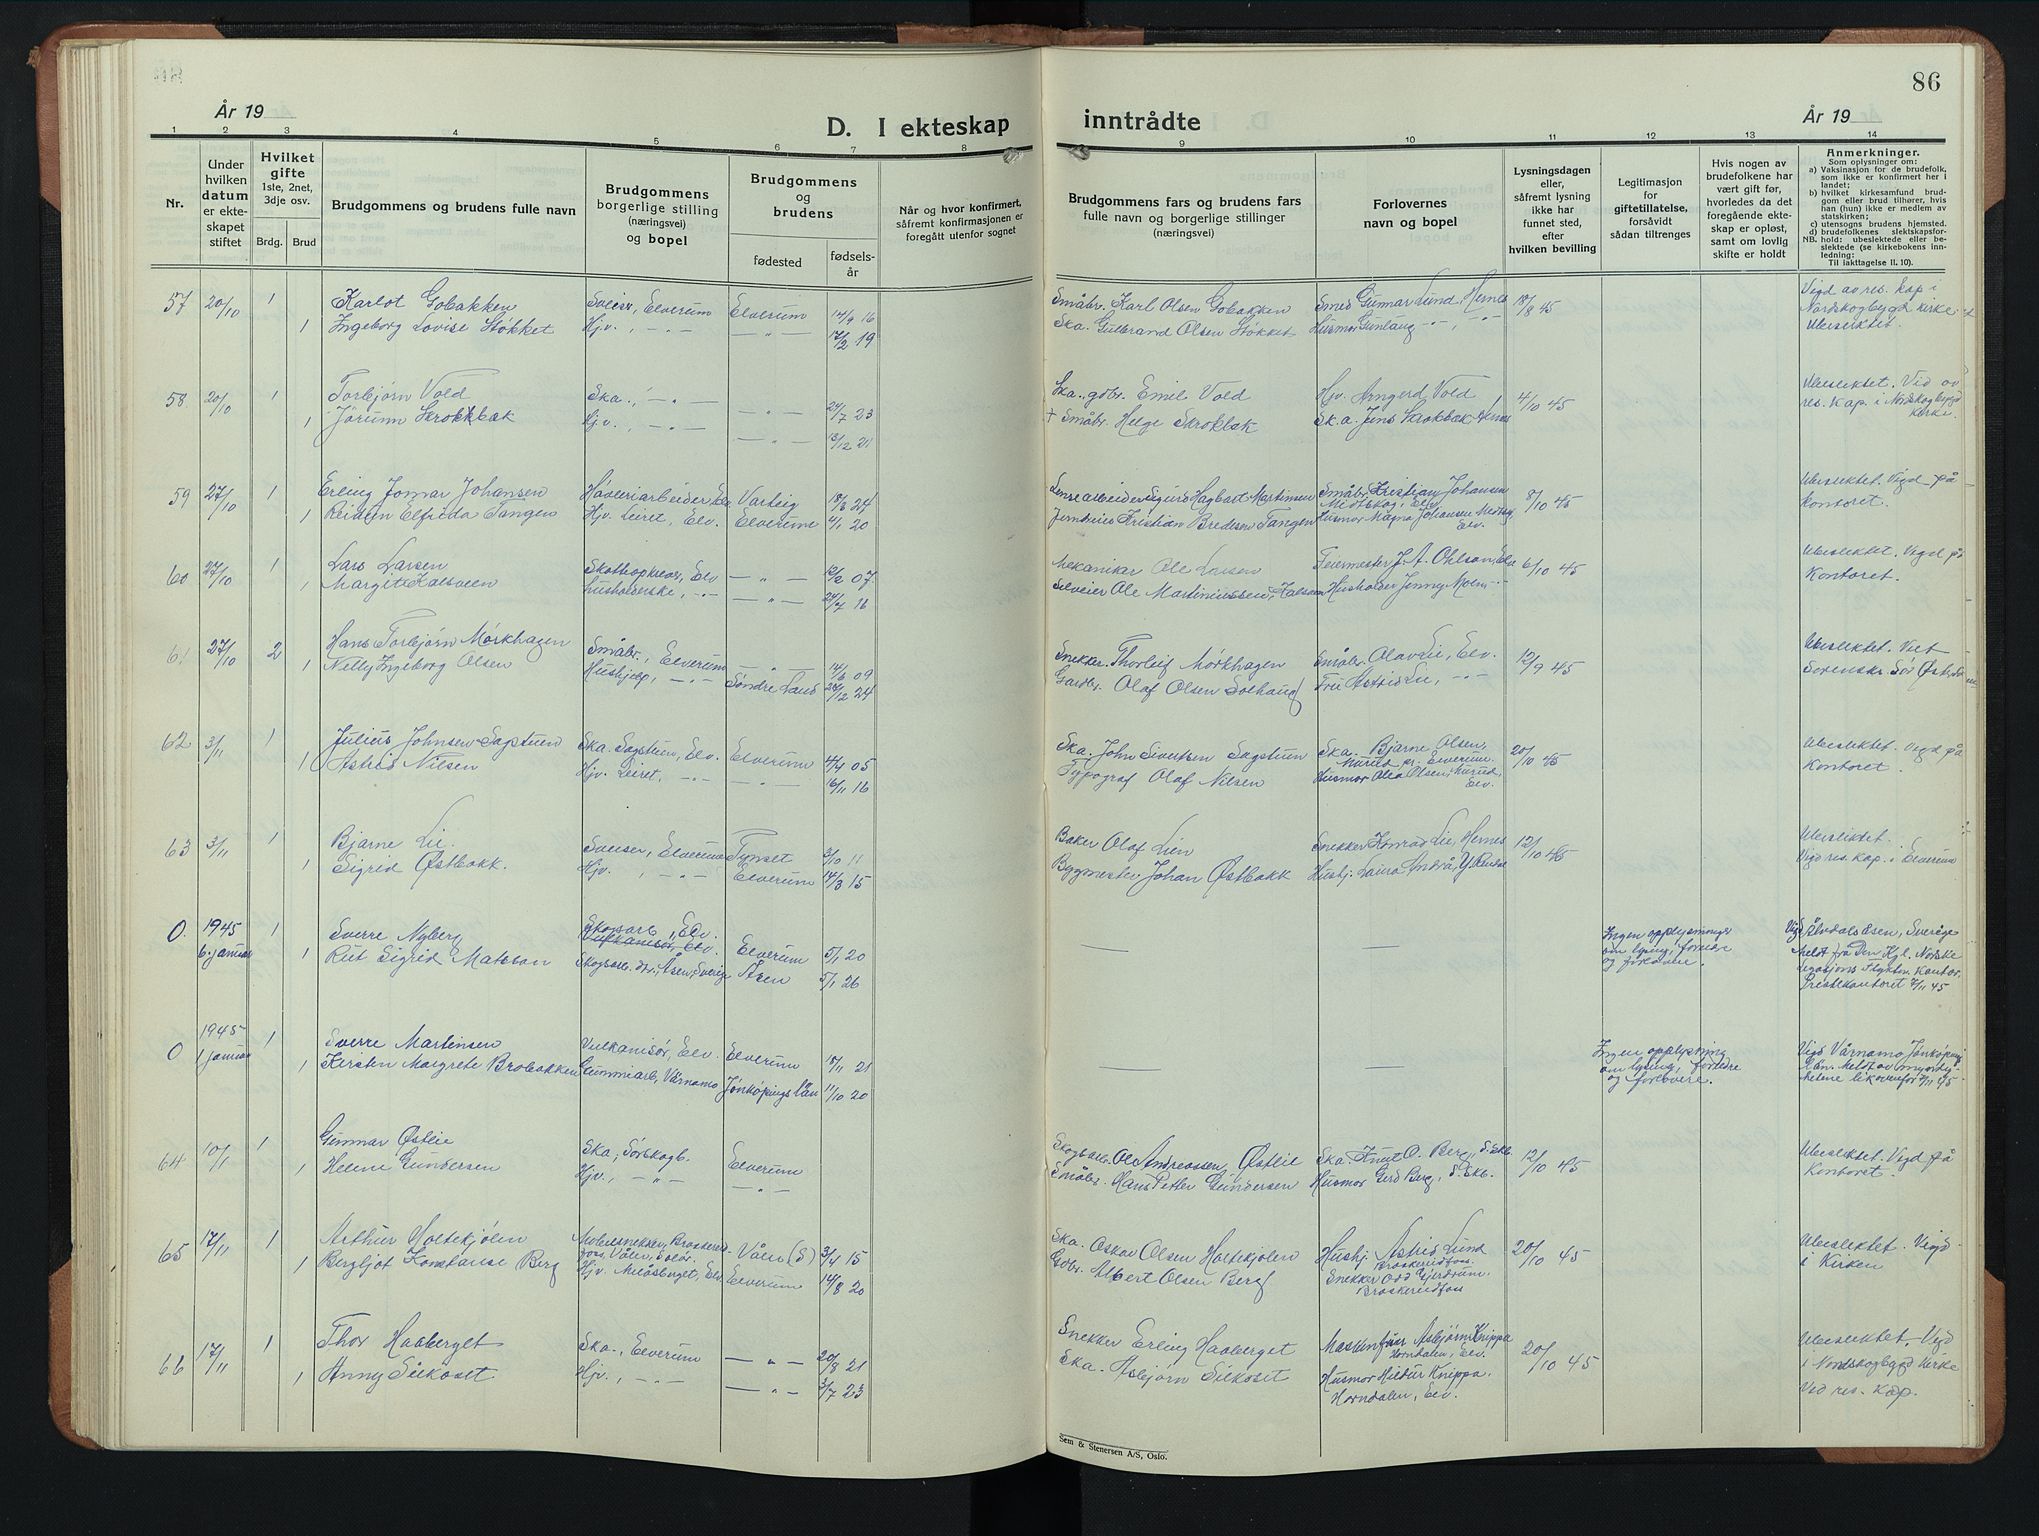 86
År 19
D. I ekteskap
inntrådte
År 19
1 2 3 4 5 6 7 8 9 10 11 12 13 14
Nr.
Under
hvilken
datum
er ekte-
skapet
stiftet
Hvilket
gifte
1ste, 2net,
3dje osv.
Brdg. Brud
Brudgommens og brudens fulle navn
Brudgommens
borgerlige stilling
(næringsvei)
og bopel
Brudgommens
og
brudens
fødested
fødsels-
år
Når og hvor konfirmert,
såfremt konfirmasjonen er
foregått utenfor sognet
Brudgommens fars og brudens fars
fulle navn og borgerlige stillinger
(næringsvei)
Forlovernes
navn og bopel
Lysningsdagen
eller,
såfremt lysning
ikke har
funnet sted,
efter
hvilken bevilling
Legitimasjon
for
giftetillatelse,
forsåvidt
sådan tiltrenges
Hvis nogen av
brudefolkene har
vært gift før,
hvorledes da det
foregående ekte-
skap er opløst,
samt om lovlig
skifte er holdt
Anmerkninger.
Som oplysninger om:
a) Vaksinasjon for de brudefolk,
som ikke er konfirmert her i
landet;
b) hvilket kirkesamfund brud-
gom eller brud tilhører, hvis
han (hun) ikke er medlem av
statskirken;
c) utensogns brudens hjemsted.
d) brudefolkenes slektskapsfor-
NB. hold: ubeslektede eller be-
slektede (se kirkebokens inn-
ledning:
Til iakttagelse II. 10).
57 20/10 1 Karlot Gobakken Elverum Elverum 14/9 16 Småbr. Karl Olsen Gobakken Smed Gunnar Lund Hernes 18/8 45 Vigd av res. kap i
1 Ingeborg Lovise Støkket Hjv., - " - - " - 17/2 19 Ska. Gulbrand Olsen Støkket Husmor Gunlaug - " - , - " - Nordskogbygd kirke
Ubeslektet.
58 20/10 1 Torbjørn Vold Ska., - " - - " - 24/7 23 Ska. gdbr. Emil Vold Hjv. Arngerd Vold 4/10 45 Ubeslektet. Vid av
1 Jørunn Skrokbæk Hjv., - " - - " - 13/12 21 + Småbr. Helge Skrokbæk Ska. Jens Skrokbæk Hernes res. kap. i Nordskogbygd
Kirke.
59 27/10 1 Erling Jomar Johansen Høvleriarbeider Elv. 18/8 24 Lensearbeider Sigurd Hagbart Martinsen Småbr. Kristian Johansen 8/10 45 Ubeslektet. Vigd på
Midtskog, Elv.
1 Reidun Elfrida Tangen Hjv. Leiret, Elv. Elverum 4/1 20 Kristian Bredesen Tangen Husmor Magna Johansen Midtskog, Kontoret.
Elv.
60 27/10 1 Lars Larsen Elv - " - 12/2 07 Mekaniker Ole Larsen Feiermester J. A. Ohlson, Elv 6/10 45 Ubeslektet. Vigd på
1 Margit Kalsveen Husholderske, - " - - " - 24/7 16 Ole Martiniussen Kalsveen Husholder Jenny Moen - " - Kontoret.
61 27/10 2 Hans Torbjørn Mørkhagen Småbr., Elverum - " - 14/6 09 Snekker Thorleif Mørkhagen Småbr. Olav Lie, Elv. 12/9 45 Ubeslektet. Viet
1 Nelly Ingeborg Olsen Hushjelp, - " - Søndre Land 24/12 24 Gardbr. Olaf Olsen Solhaug Fru Astrid Lie, - " - Sorenskr. Sør Østerdal
62 3/11 1 Julius Johnsen Sagstuen Ska. Sagstuen, Elv. Elverum 4/4 05 Ska. John Sivertsen Sagstuen Ska. Bjarne Olsen, 20/10 45 Ubeslektet. Vigd på
pr. Elverum.
1 Astrid Nilsen Hjv. Leiret, - " - - " - 16/11 16 Typograf Olaf Nilsen Husmor Olea Olsen, Kontoret.
Elv.
63 3/11 1 Bjarne Lie. Elverum Tynset 3/10 11 Baker Olaf Lien Snekker Konrad Lie, Hernes 12/10 45 Ubeslektet.
1 Sigrid Østbakk. Hjv., - " - Elverum 14/3 15 Byggmester Johan Østbakk Hushj. Laura Andrå, Y. Rendal Vigd res. kap. i Elverum
0. 1945 1 Sverre Nyberg Skogsarb., Elv.
Vulkanisør, Elv. Elverum 5/1 20 Ingen opplysninger Vigd Älvdalsåsen, Sverige
6. januar 1 Rut Sigrid Matsson Skogsarb. dtr., Åsen, Sverige Åsen 5/1 26 om lysing, foreldre Meldt fra Den Kgl. Norske
og forlovere. Legasjons Flyktn. Kontor.
Prestekontoret 7/11 45
0 1945 1 Sverre Martinsen Vulkanisør, Elv. Elverum 18/11 21 Ingen opplysning Vigd Värnamo Jönköpings
1 januar 1 Kirsten Margrete Brobakken Gummiarb, Värnamo Jönköpings län 11/10 20 om lysing, foreldre Län. Meldt av
og forlovere.
64 10/11 1 Gunnar Østlie Ska, Sørskogb. Elverum Skogsarb. Ole Andreassen Østlie Ska. Knut O. Berg, S. Skb. 12/10 45 Ubeslektet. Vigd på
1 Helene Gundersen Hjv., - " - - " - Småbr. Hans Petter Gundersen Husmor Gerd Berg, S. Skb. Kontoret.
65 17/11 1 Arthur Holtekjølen Møbelsnekker, Braskereid-
foss, Våler, Solør. Våler (S) 3/4 15 Ska. Oskar Olsen Holtekjølen Hushj. Astrid Lund 20/10 45 Ubeslektet. Vigd
Braskereidfoss.
1 Bergljot Konstanse Berg Hjv. Elv. Elverum 14/8 20 Gdbr. Albert Olsen Berg Snekker Odd Gjerdrum. i Kirken
Braskereidfoss
66 17/11 1 Thor Haaberget Ska., Elverum - " - 20/8 21 Snekker Erling Haaberget Asbjørn Knippa 20/10 45 Ubeslektet. Vigd
Horndalen, Elv.
1 Anny Silkoset Hjv., - " - - " - 3/7 23 Ska. Asbjørn Silkoset Husmor Hildur Knippa. i Nordskogbygd Kirke
Horndalen, Elv. Ved res. Kap.
Sem & Stenersen A/S, Oslo.